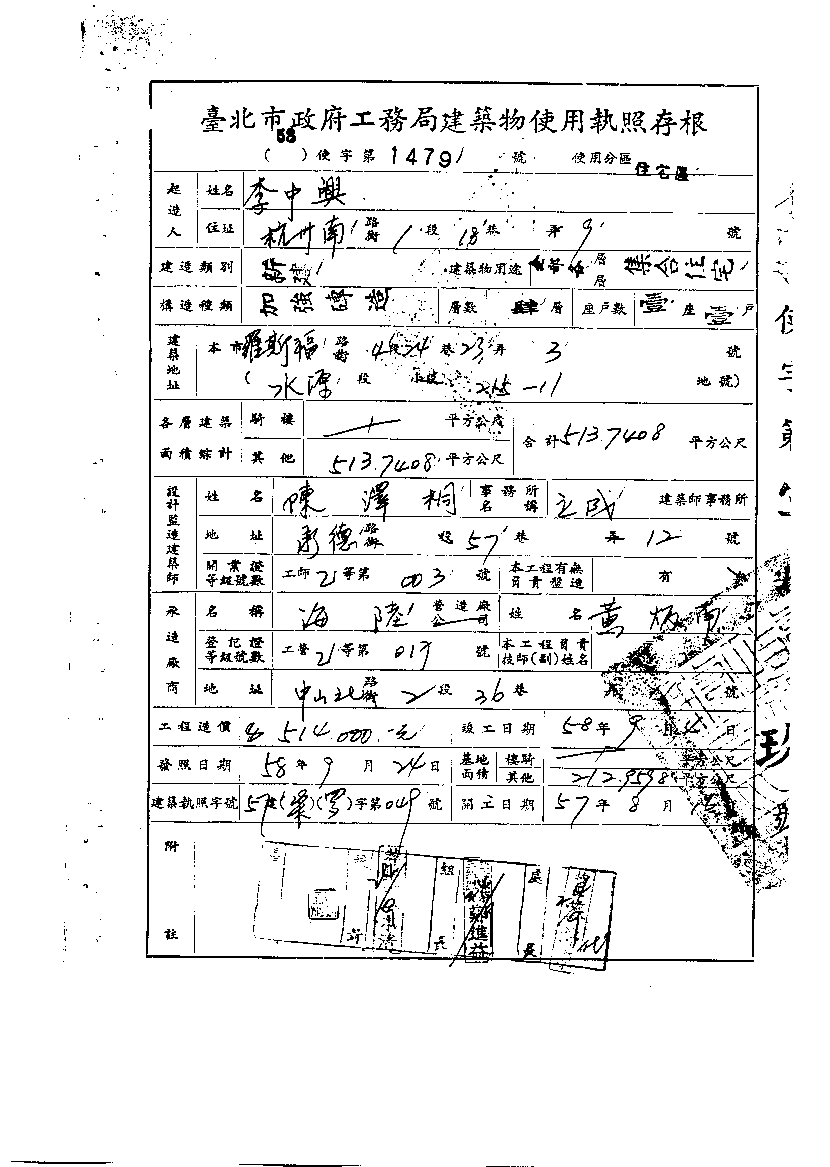 臺北市政府工務局建築物使用執照存根
(58)使字第1479號 使用分區 住宅區
起造人 姓名 李中興
住址 杭州南路街1段18巷弄9號
建造類別 新建 建築物用途 全部各層層集合住宅
構造種類 加強磚造 層數 肆層 座戶數 壹座壹戶
建築地址 本市羅斯福路街4段24巷23弄3號
(水源段小段215-11地號)
各層建築面積綜計 騎樓 平方公尺 合計513.7408平方公尺
其他 513.7408平方公尺
設計監造建築師 姓名 陳澤桐 事務所名稱 建築師事務所
地址 承德路街段57巷弄12號
開業證等級號數 工師 等第003號 本工程有無負責監造 有
承造廠商 名稱 海陸 營造廠公司 姓名 黃
登記證等級號數 工營 等第 號 本工程負責技師(副)姓名
地址 中山北路街2段36巷 號
工程造價 514,000.-元 竣工日期 58年9月 日
發照日期 58年9月24日 基地面積 騎樓 平方公尺
其他 212.9598平方公尺
建築執照字號 57 字第049號 開工日期 57年8月
附註
組長 蘇進益 處長
使字第
玖